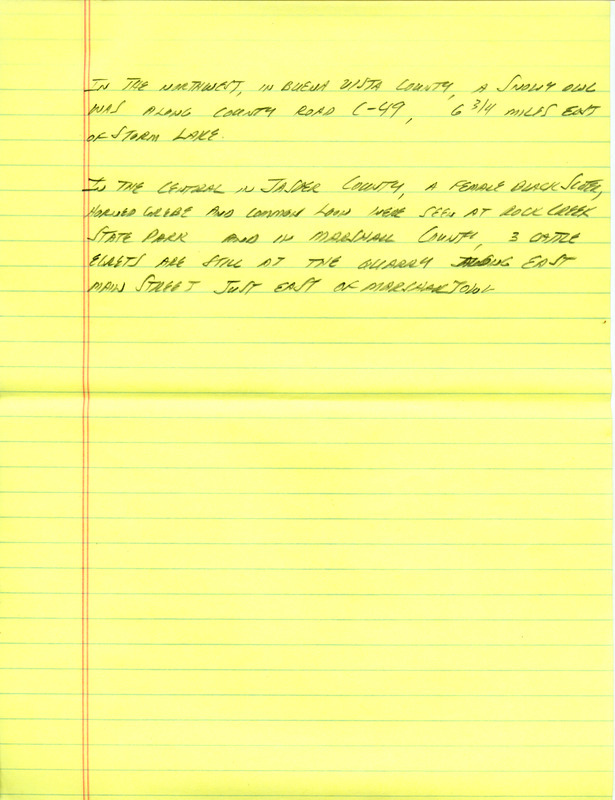 IN THE NORTHWEST, IN BUENA VISTA COUNTY, A SNOWY OWL
WAS ALONG COUNTY ROAD C-49, 6 3/4 MILES EAST
OF STORM LAKE.
IN THE CENTRAL IN JASPER COUNTY, A FEMALE BLACK SCOTER,
HORNED GREBE AND COMMON LOON WERE SEEN AT ROCK CREEK
STATE PARK AND IN MARSHALL COUNTY, 3 CATTLE
EGRETS ARE STILL AT THE QUARRY ALONG EAST
MAIN STREET JUST EAST OF MARSHALLTOWN.